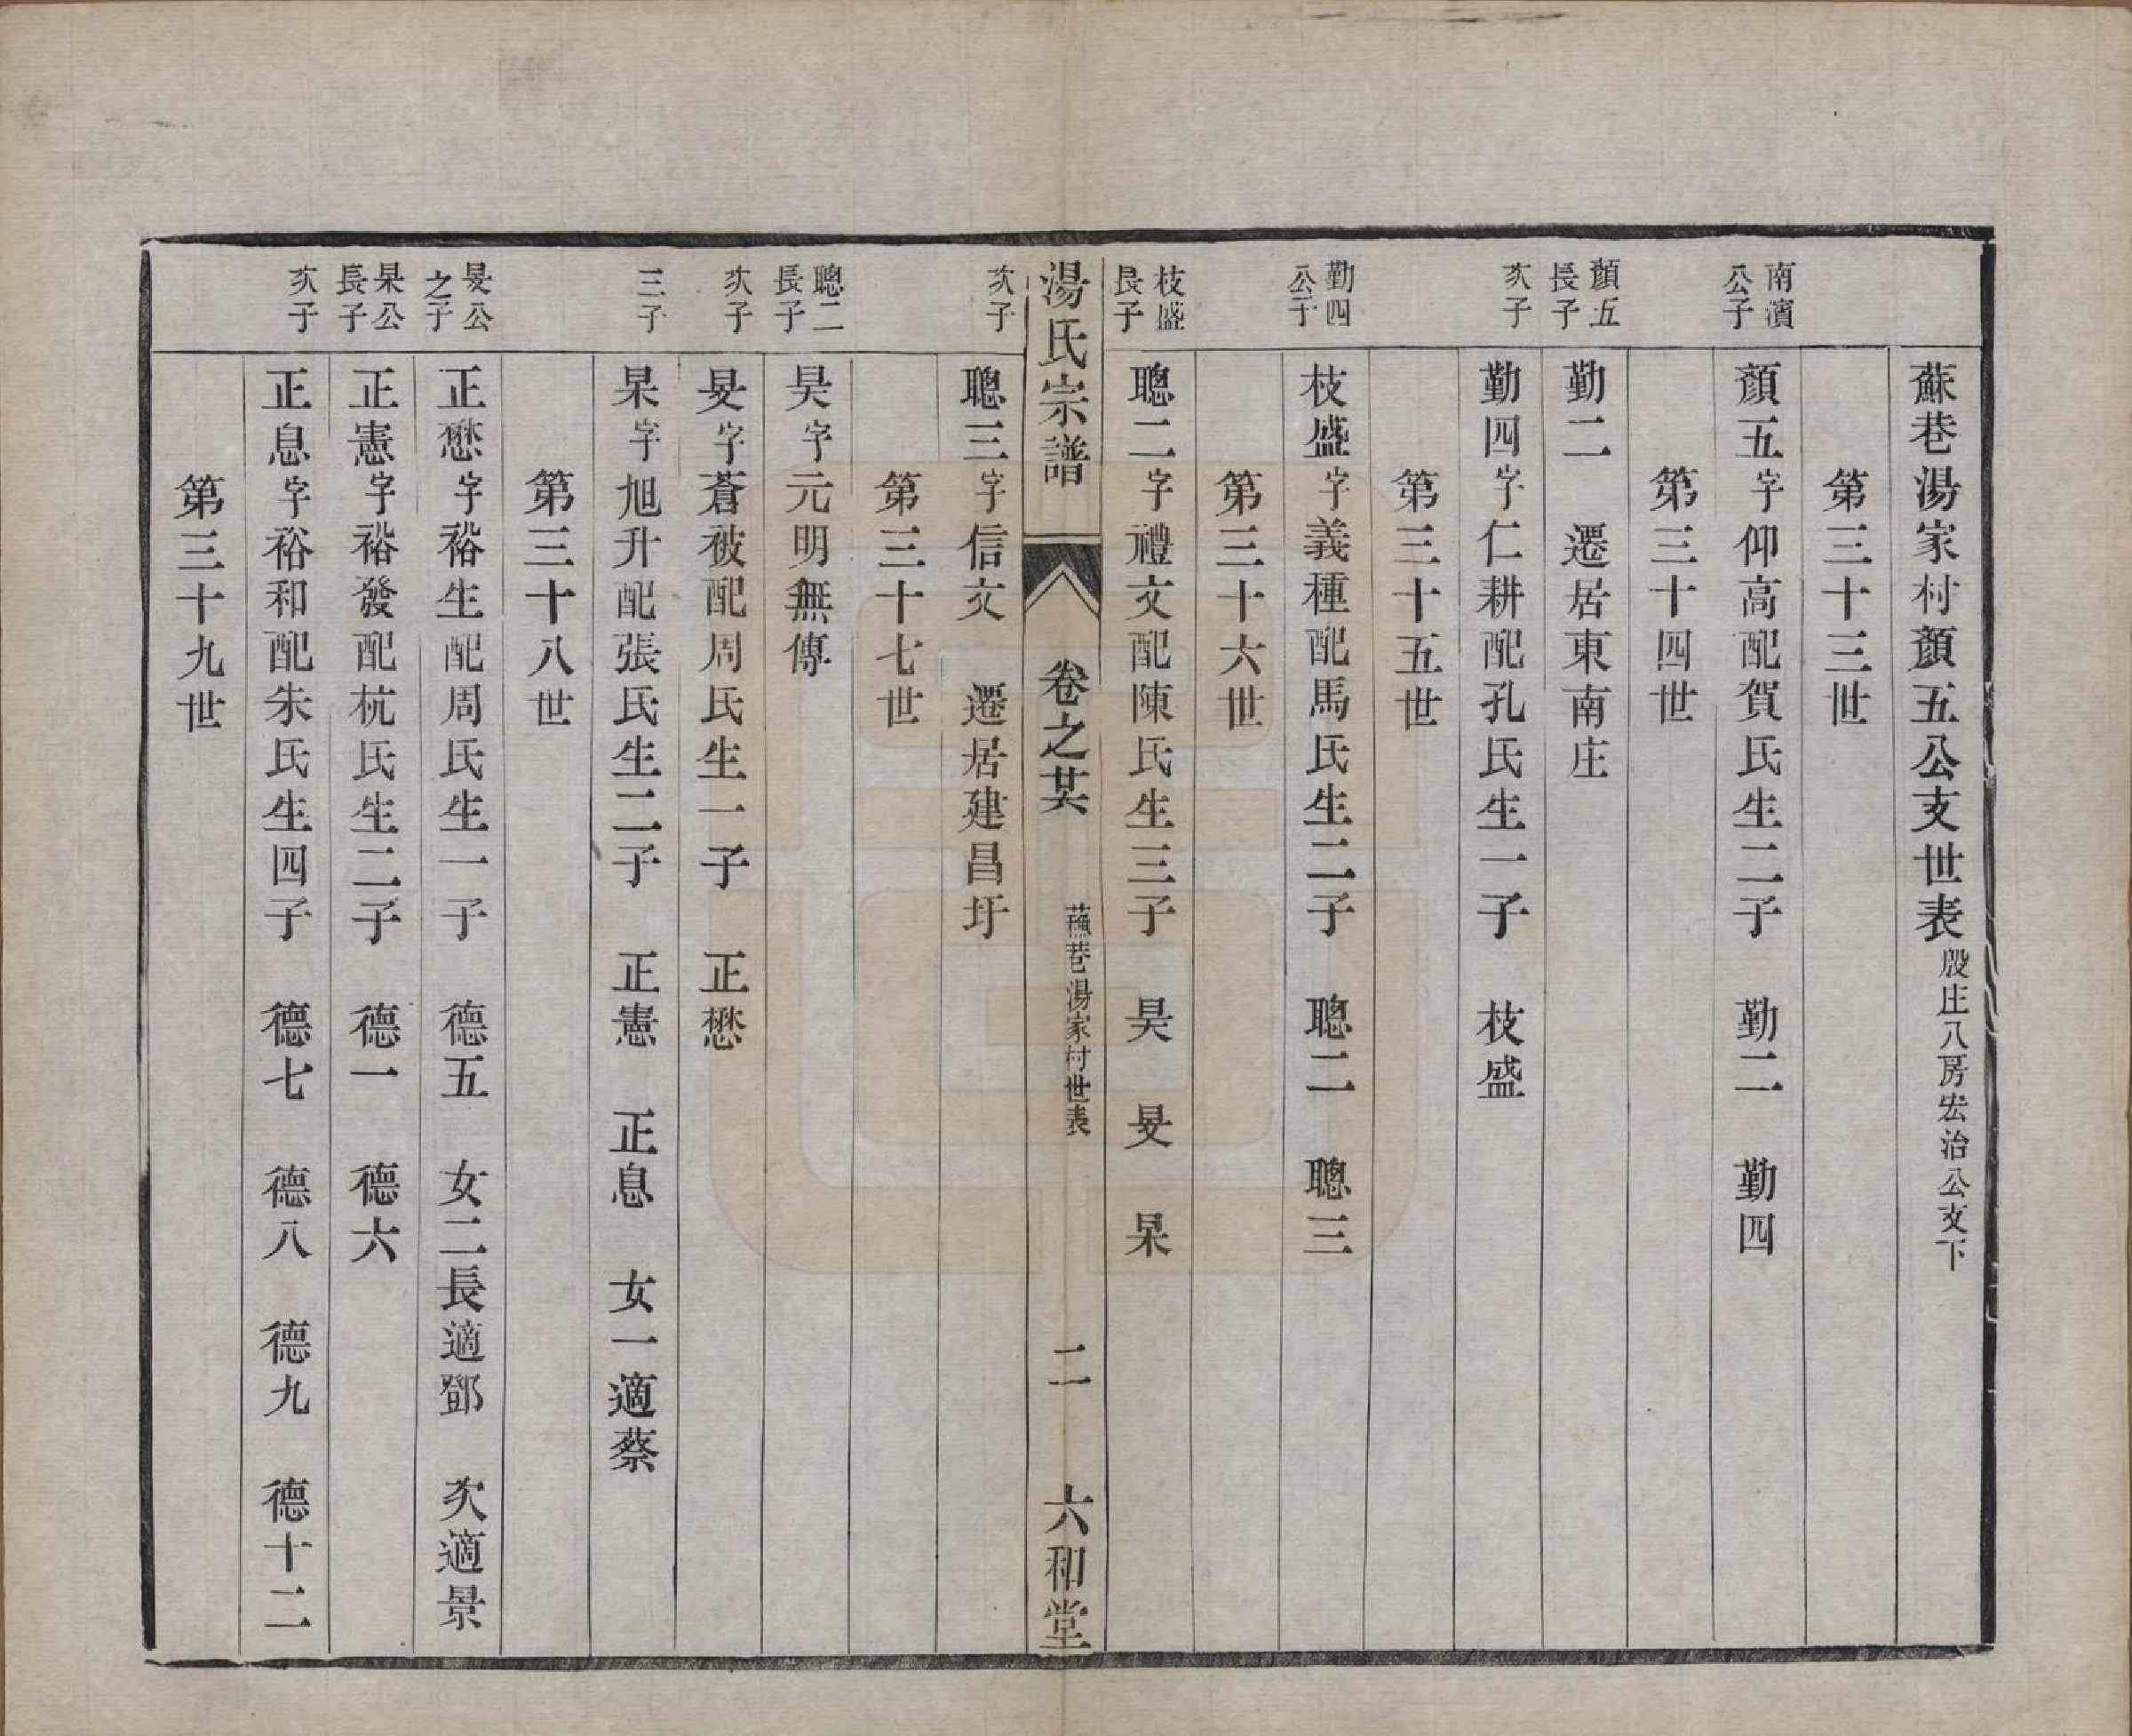 蘇巷湯家村顏五公支世表殷庄八房宏治公支下
第三十三世
南濱公子
顏五字仰高配賀氏生二子 勤二 勤四
第三十四世
顏五長子
勤二 遷居東南庄
次子
勤四字仁耕配孔氏生一子 枝盛
第三十五世
勤四公子
枝盛字義種配馬氏生二子 聰二 聰三
第三十六世
枝盛長子
聰二字禮文配陳氏生三子 昊 旻 杲
湯氏宗譜 卷之其 蘇巷湯家村世表 二 六和堂
次子
聰三字信文 遷居建昌圩
第三十七世
聰二長子
昊字元明無傳
次子
旻字蒼被配周氏生一子 正懋
三子
杲字旭升配張氏生二子 正憲 正息 女一適蔡
第三十八世
旻公之子
正懋字裕生配周氏生一子 德五 女二長適鄧 次適景
杲公長子
正憲字裕發配杭氏生二子 德一 德六
次子
正息字裕和配朱氏生四子 德七 德八 德九 德十二
第三十九世